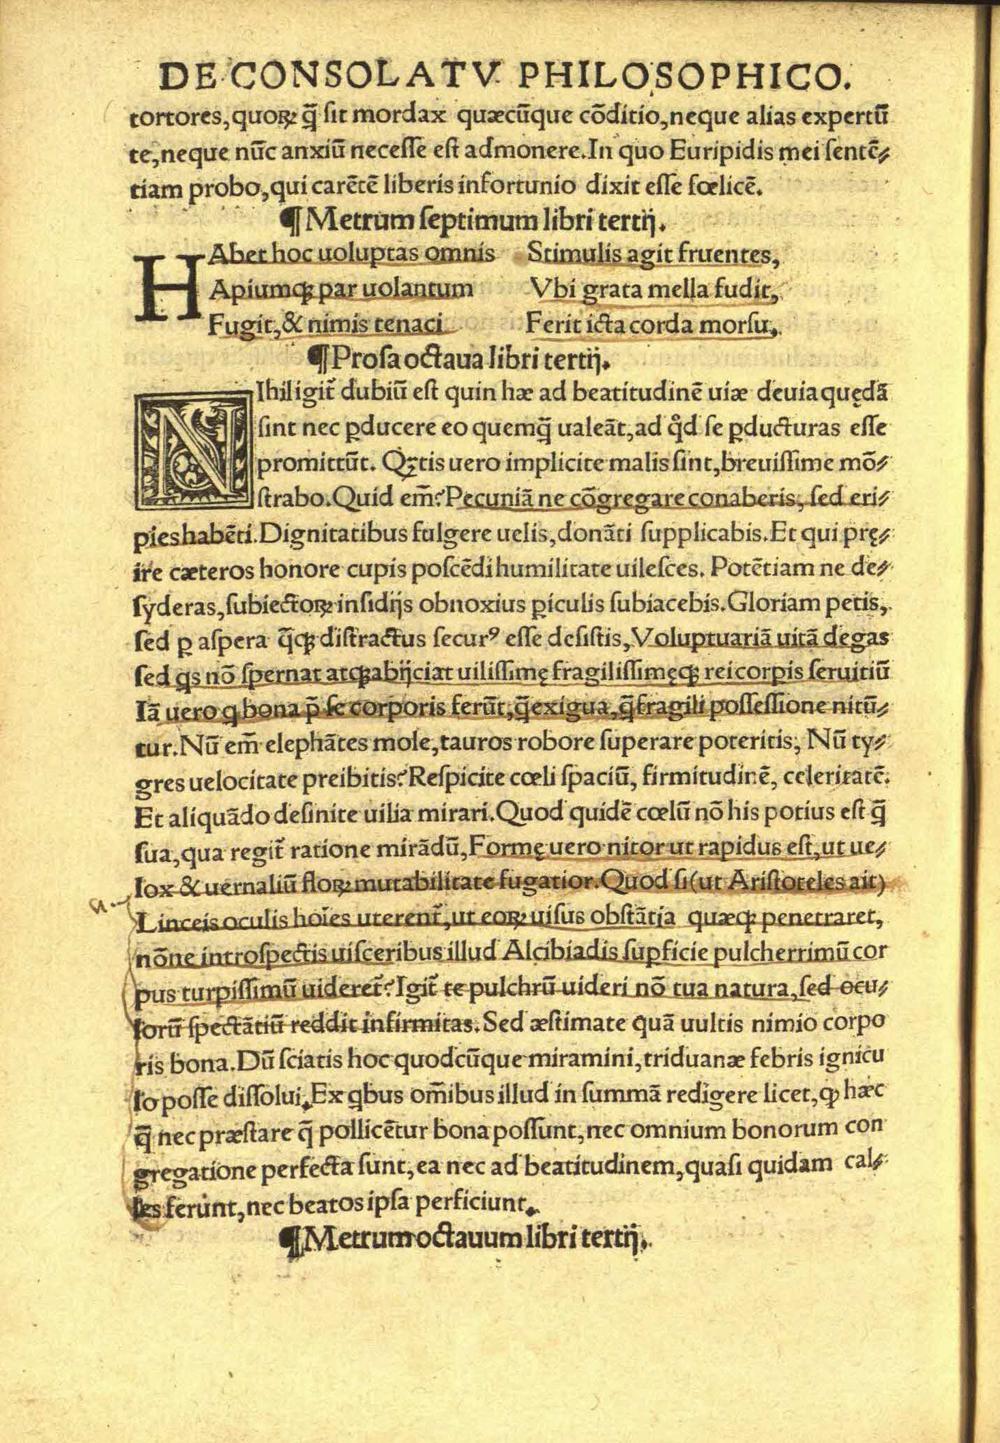 DE CONSOLATV PHILOSOPHICO.
tortores,quoꝝ q̃ sit mordax quæcũque cõditio,neque alias expertũ
te,neque nũc anxiũ necesse est admonere.In quo Euripidis mei sentẽ⸗
tiam probo,qui carẽtẽ liberis infortunio dixit esse fœlicẽ.
¶ Metrum septimum libri tertij.
HAbet hoc uoluptas omnis
Apiumqꝫ par uolantum
Fugit,& nimis tenaci
Stimulis agit fruentes,
Vbi grata mella fudit,
Ferit icta corda morsu.
¶ Prosa octaua libri tertij.
NIhil igit̃ dubiũ est quin hæ ad beatitudinẽ uiæ deuia quędã
sint nec ꝑducere eo quemq̃ ualeãt,ad qd̛ se ꝑducturas esse
promittũt. Qꝫtis uero implicite malis sint,breuissime mõ⸗
strabo.Quid em̃?Pecuniã ne cõgregare conaberis, sed eri⸗
pies habẽti.Dignitatibus fulgere uelis,donãti supplicabis.Et qui prę⸗
ire cæteros honore cupis poscẽdi humilitate uilesces. Potẽtiam ne de⸗
syderas,subiectoꝝ insidijs obnoxius ꝑiculis subiacebis.Gloriam petis,
sed ꝑ aspera q̃qꝫ distractus secur⁹ esse desistis,Voluptuariã uitã degas
sed qs nõ spernat atqꝫ abijciat uilissimę fragilissimęqꝫ rei corpis seruitiũ
Iã uero q bona p̃ se corporis ferũt,q̃ exigua,q̃ fragili possessione nitũ⸗
tur.Nũ em̃ elephãtes mole,tauros robore superare poteritis, Nũ ty⸗
gres uelocitate preibitis?Respicite cœli spaciũ, firmitudinẽ, celeritatẽ.
Et aliquãdo desinite uilia mirari.Quod quidẽ cœlũ nõ his potius est q̃
sua,qua regit̃ ratione mirãdũ,Formę uero nitor ut rapidus est,ut ue⸗
lox & uernaliũ floꝝ mutabilitate fugatior.Quod si(ut Aristoteles ait)
Linceis oculis hoĩes uterent̃,ut eoꝝ uisus obstãtia quæqꝫ penetraret,
nõne introspectis uisceribus illud Alcibiadis supficie pulcherrimũ cor
pus turpissimũ uideret̃?Igit̃ te pulchrũ uideri nõ tua natura,sed ocu⸗
lorũ spectãtiũ reddit infirmitas.Sed æstimate quã uultis nimio corpo
ris bona.Dũ sciatis hoc quodcũque miramini,triduanæ febris ignicu
lo posse dissolui.Ex qbus om̃ibus illud in summã redigere licet,ꝙ hæc
q̃ nec præstare q̃ pollicẽtur bona possunt,nec omnium bonorum con
gregatione perfecta sunt,ea nec ad beatitudinem,quasi quidam cal⸗
les ferunt,nec beatos ipsa perficiunt.
¶ Metrum octauum libri tertij.